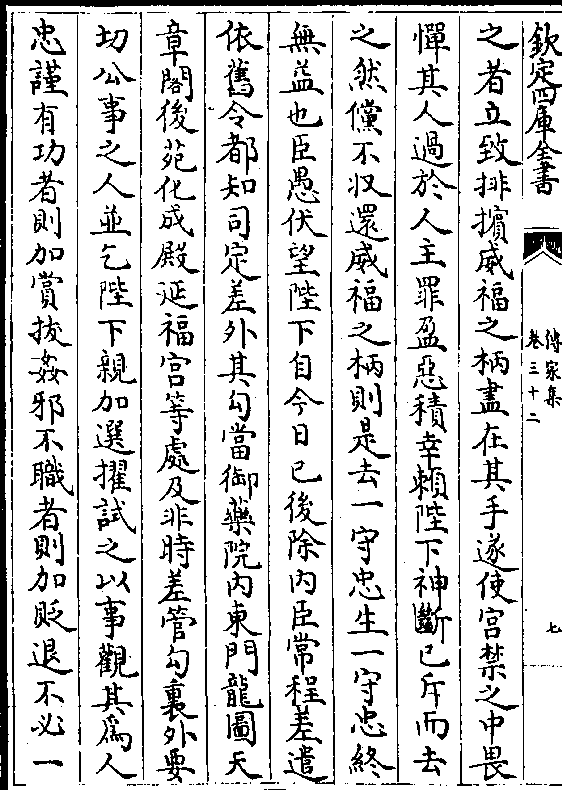 欽定四庫全書
傳家集
卷三十二
七
之者立致排擯威福之柄盡在其手遂使宫禁之中畏
憚其人過於人主罪盈惡積幸賴陛下神斷已斥而去
之然儻不収還威福之柄則是去一守忠生一守忠終
無益也臣愚伏望陛下自今日已後除内臣常程差遣
依舊令都知司定差外其勾當御藥院内東門龍圖天
章閣後苑化成殿延福宫等處及非時差管勾裏外要
切公事之人並乞陛下親加選擢試之以事觀其為人
忠謹有功者則加賞拔姦邪不職者則加貶退不必一